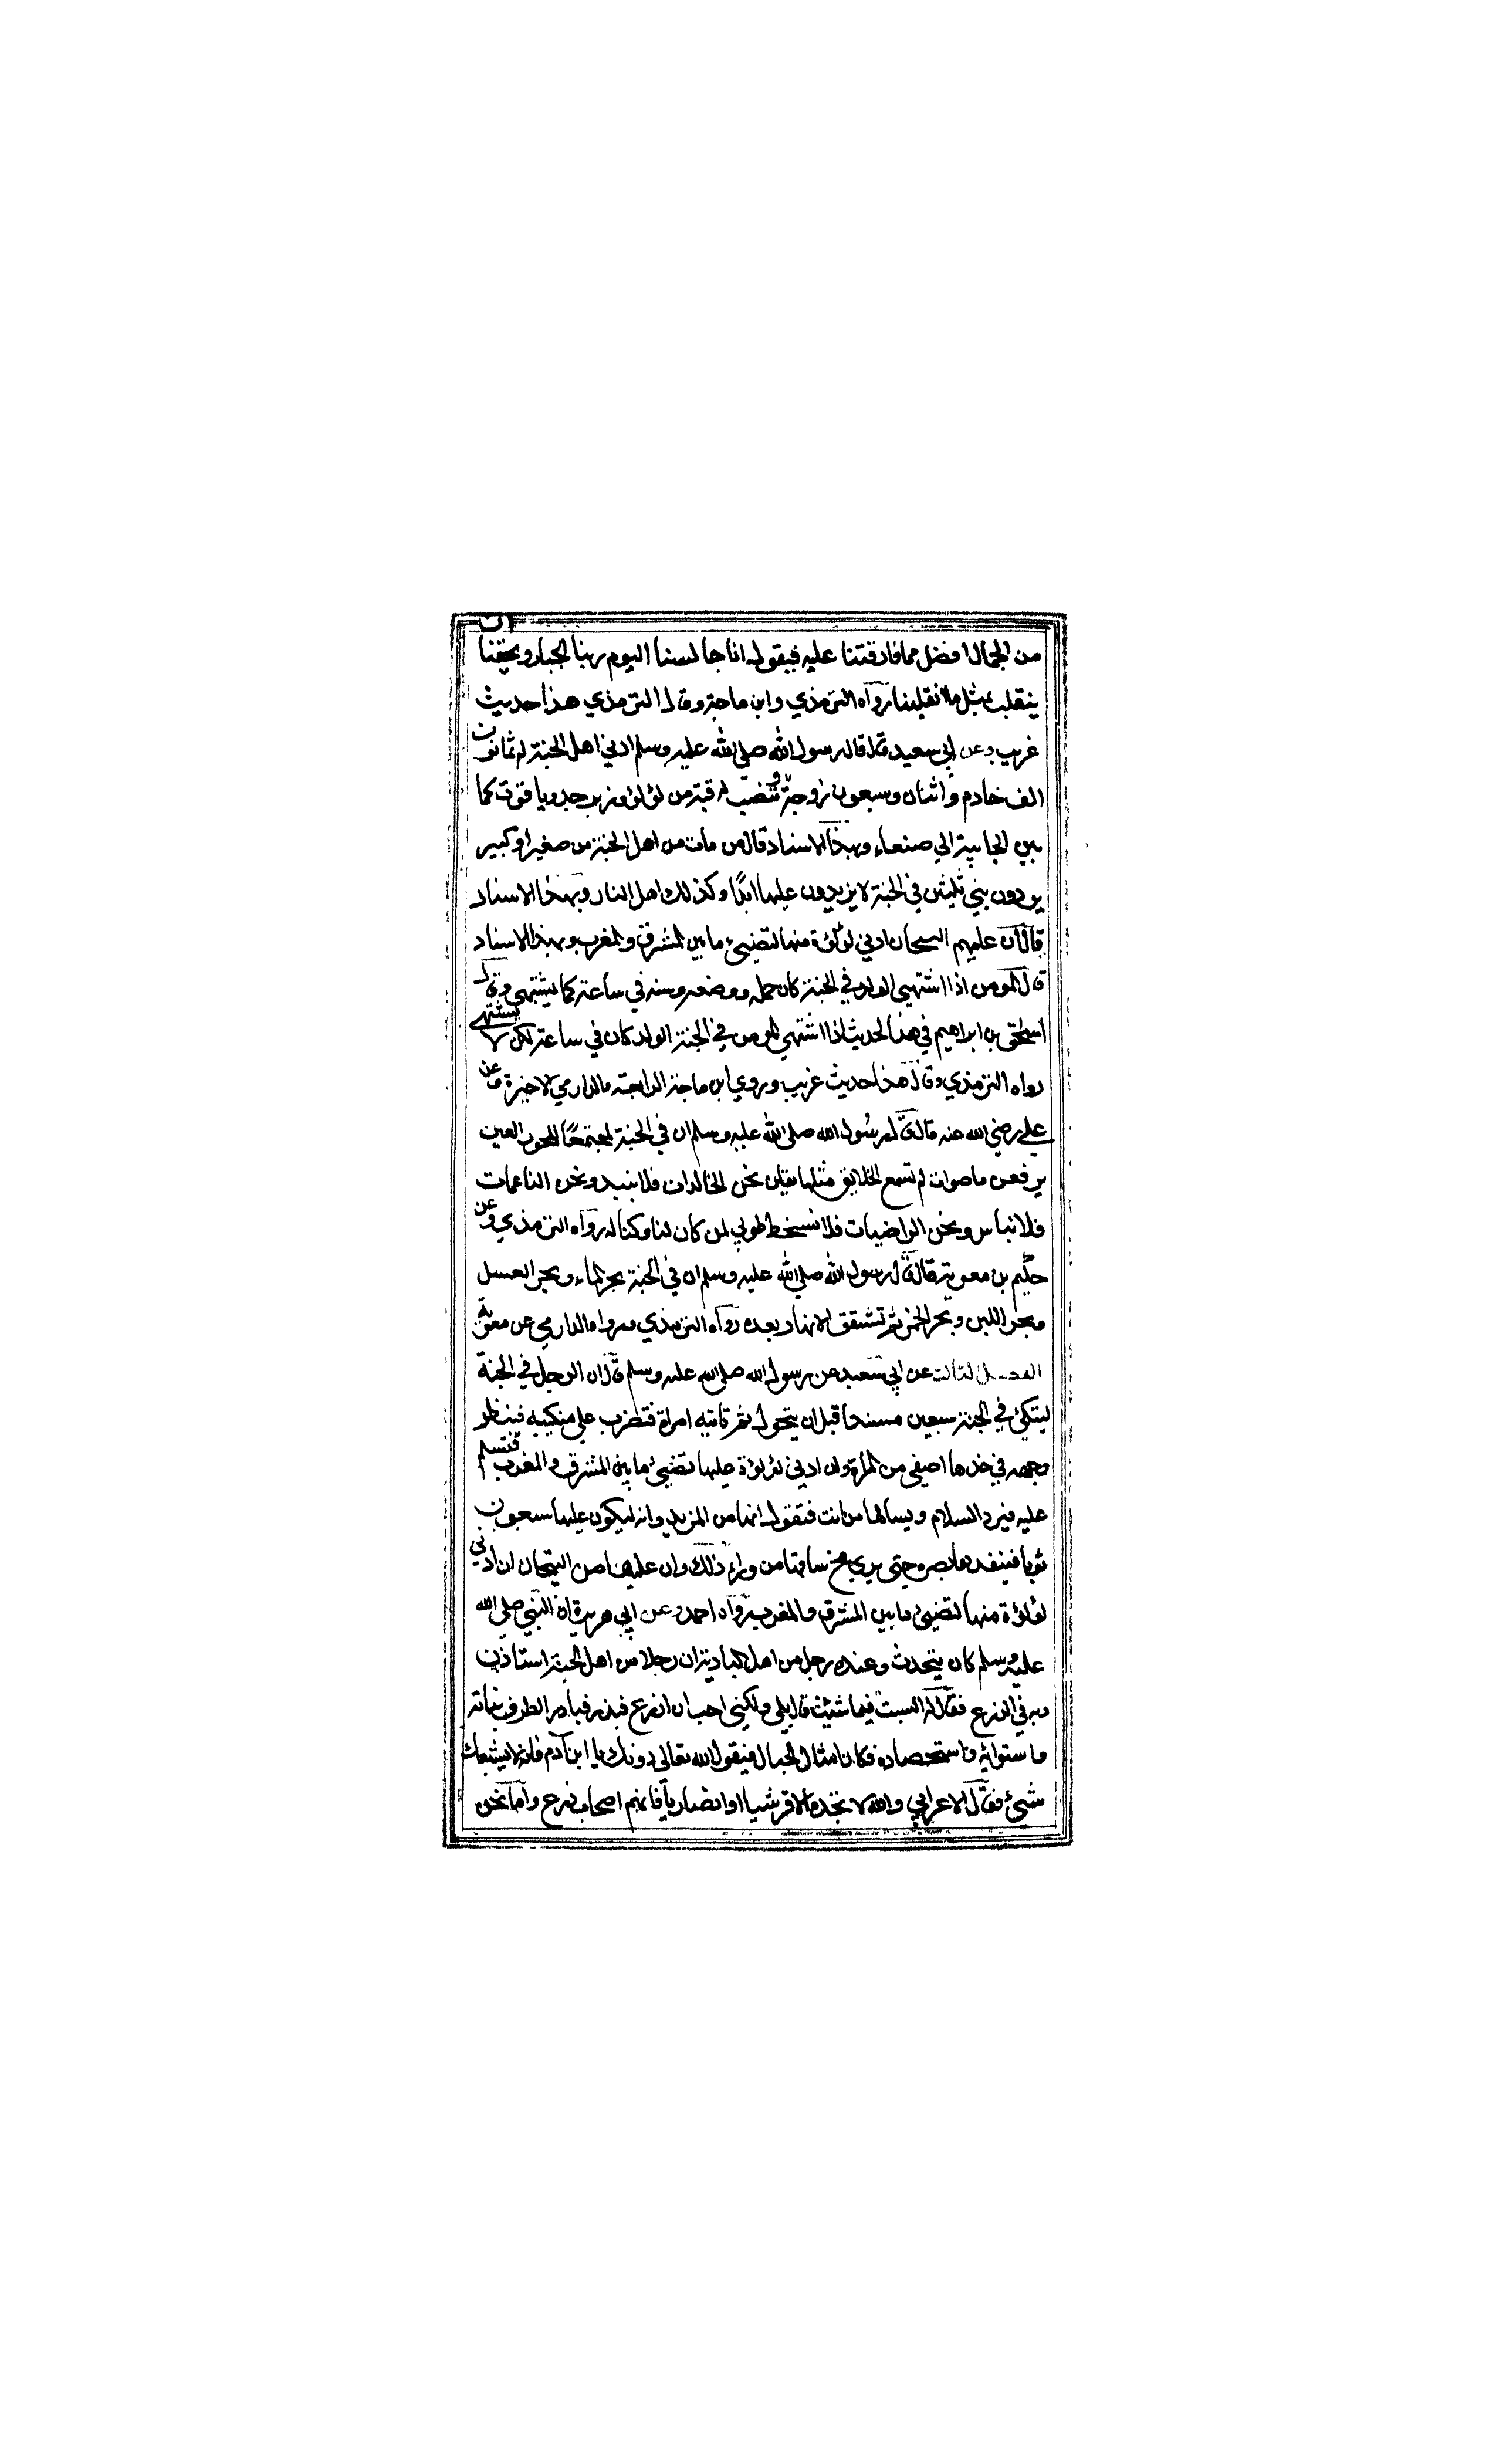 ان
من الجمال افضل مما فارقتنا عليه فيقول انا جالسنا اليوم ربنا الجبار ويحقنا
ينقلب بمثل ما انقلبنا رواه الترمذي وابن ماجة وقال الترمذي هذا حديث
غريب وعن ابي سعيد قال قال رسول الله صلى الله عليه وسلم ادني اهل الجنة له ثمانون
الف خادم واثنان وسبعون زوجة وتنصب له قبة من لؤلؤ وزبرجد وياقوت كما
بين الجابية الي صنعاء وبهذا الاسناد قال من مات من اهل الجنة من صغير او كبير
يردون بني ثلثين في الجنة لا يزيدون عليها ابدا وكذلك اهل النار وبهذا الاسناد
قال ان عليهم التيجان ادني لؤلؤة منها لتضيئ ما بين المشرق والمغرب وبهذا الاسناد
قال المومن اذا اشتهي الولد في الجنة كان حمله ووضعه وسنه في ساعة كما يشتهي وقال
اسحق بن ابراهيم في هذا الحديث اذا اشتهي المومن في الجنة الولد كان في ساعة لكن لا يشتهي
رواه الترمذي وقال هذا حديث غريب وروي ابن ماجة الرابعة والدارمي الاخيرة وعن
علي رضي الله عنه قال قال رسول الله صلى الله عليه وسلم ان في الجنة لمجتمعا للحور العين
يرفعن باصوات لم تسمع الخلايق مثلها يقلن نحن الخالدات فلا نبيد ونحن الناعمات
فلا نباس ونحن الراضيات فلا نسخط طوبي لمن كان لنا وكنا له رواه الترمذي وعن
حكيم بن معوية قال قال رسول الله صلى الله عليه وسلم ان في الجنة بحر الماء وبحر العسل
وبحر اللبن وبحر الخمر ثم تشقق الانهار بعده رواه الترمذي ورواه الدارمي عن معوية
الفصل الثالث عن ابي سعيد عن رسول الله صلى الله عليه وسلم قال ان الرجل في الجنة
ليتكئ في الجنة سبعين مسندا قبل ان يتحول ثم تاتيه امراة فتضرب علي منكبيه فينظر
وجهه في خدها اصفي من المراة وان ادني لؤلؤة عليها تضيئ ما بين المشرق والمغرب فتسلم
عليه فيرد السلام ويسالها من انت فتقول انا من المزيد وانه ليكون عليها سبعون
ثوبا فينفدها بصره حتى يري مخ ساقها من وراء ذلك وان عليها من التيجان ان ادني
لؤلؤة منها لتضيئ ما بين المشرق والمغرب رواه احمد وعن ابي هريرة ان النبي صلى الله
عليه وسلم كان يتحدث وعنده رجل من اهل البادية ان رجلا من اهل الجنة استاذن
ربه في الزرع فقال له الست فيما شئت قال بلي ولكني احب ان ازرع فبذر فبادر الطرف نباته
واستوائه واستحصاده فكان امثال الجبال فيقول الله تعالى دونك يا ابن آدم فانه لا يشبعك
شيئ فقال الاعرابي والله لا نجده الا قرشيا او انصاريا فانهم اصحاب زرع واما نحن